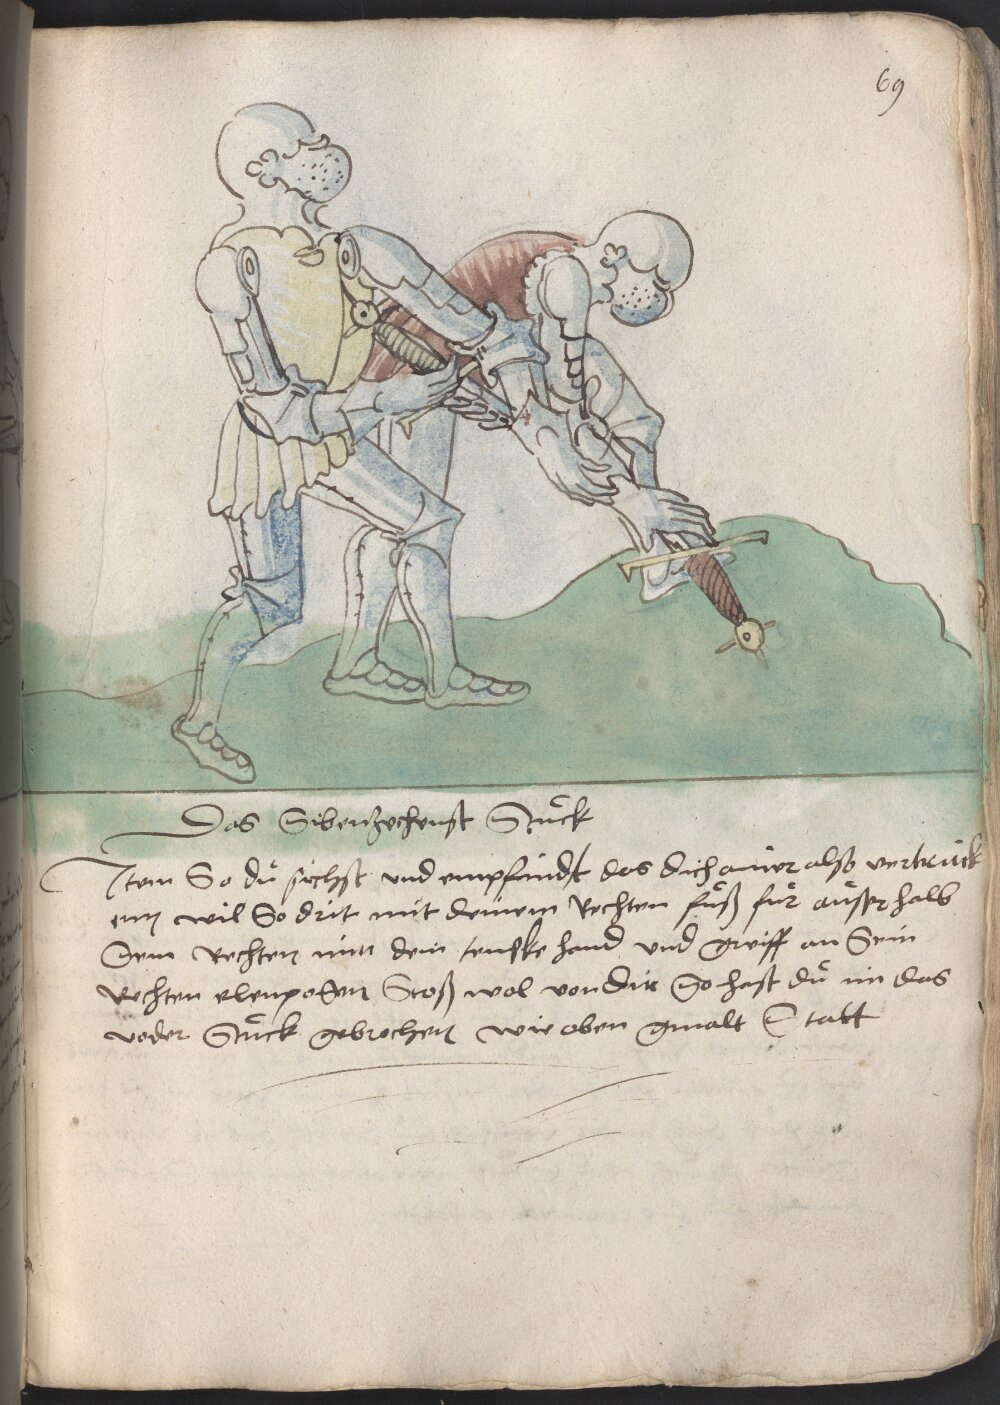 69
Das Sibenzechenst Stuck
Item So du sichst und empfindst das dich ainer also vertruck
enn wil So drit mit deinem Rechten fuß für ausserhalb
Seim Rechten mit dein lencke hand und greiff an Sein
Rechten elenpogen Stoß wol von dir So hast du im das
voder Stuck gebrochen wie oben gmalt Statt